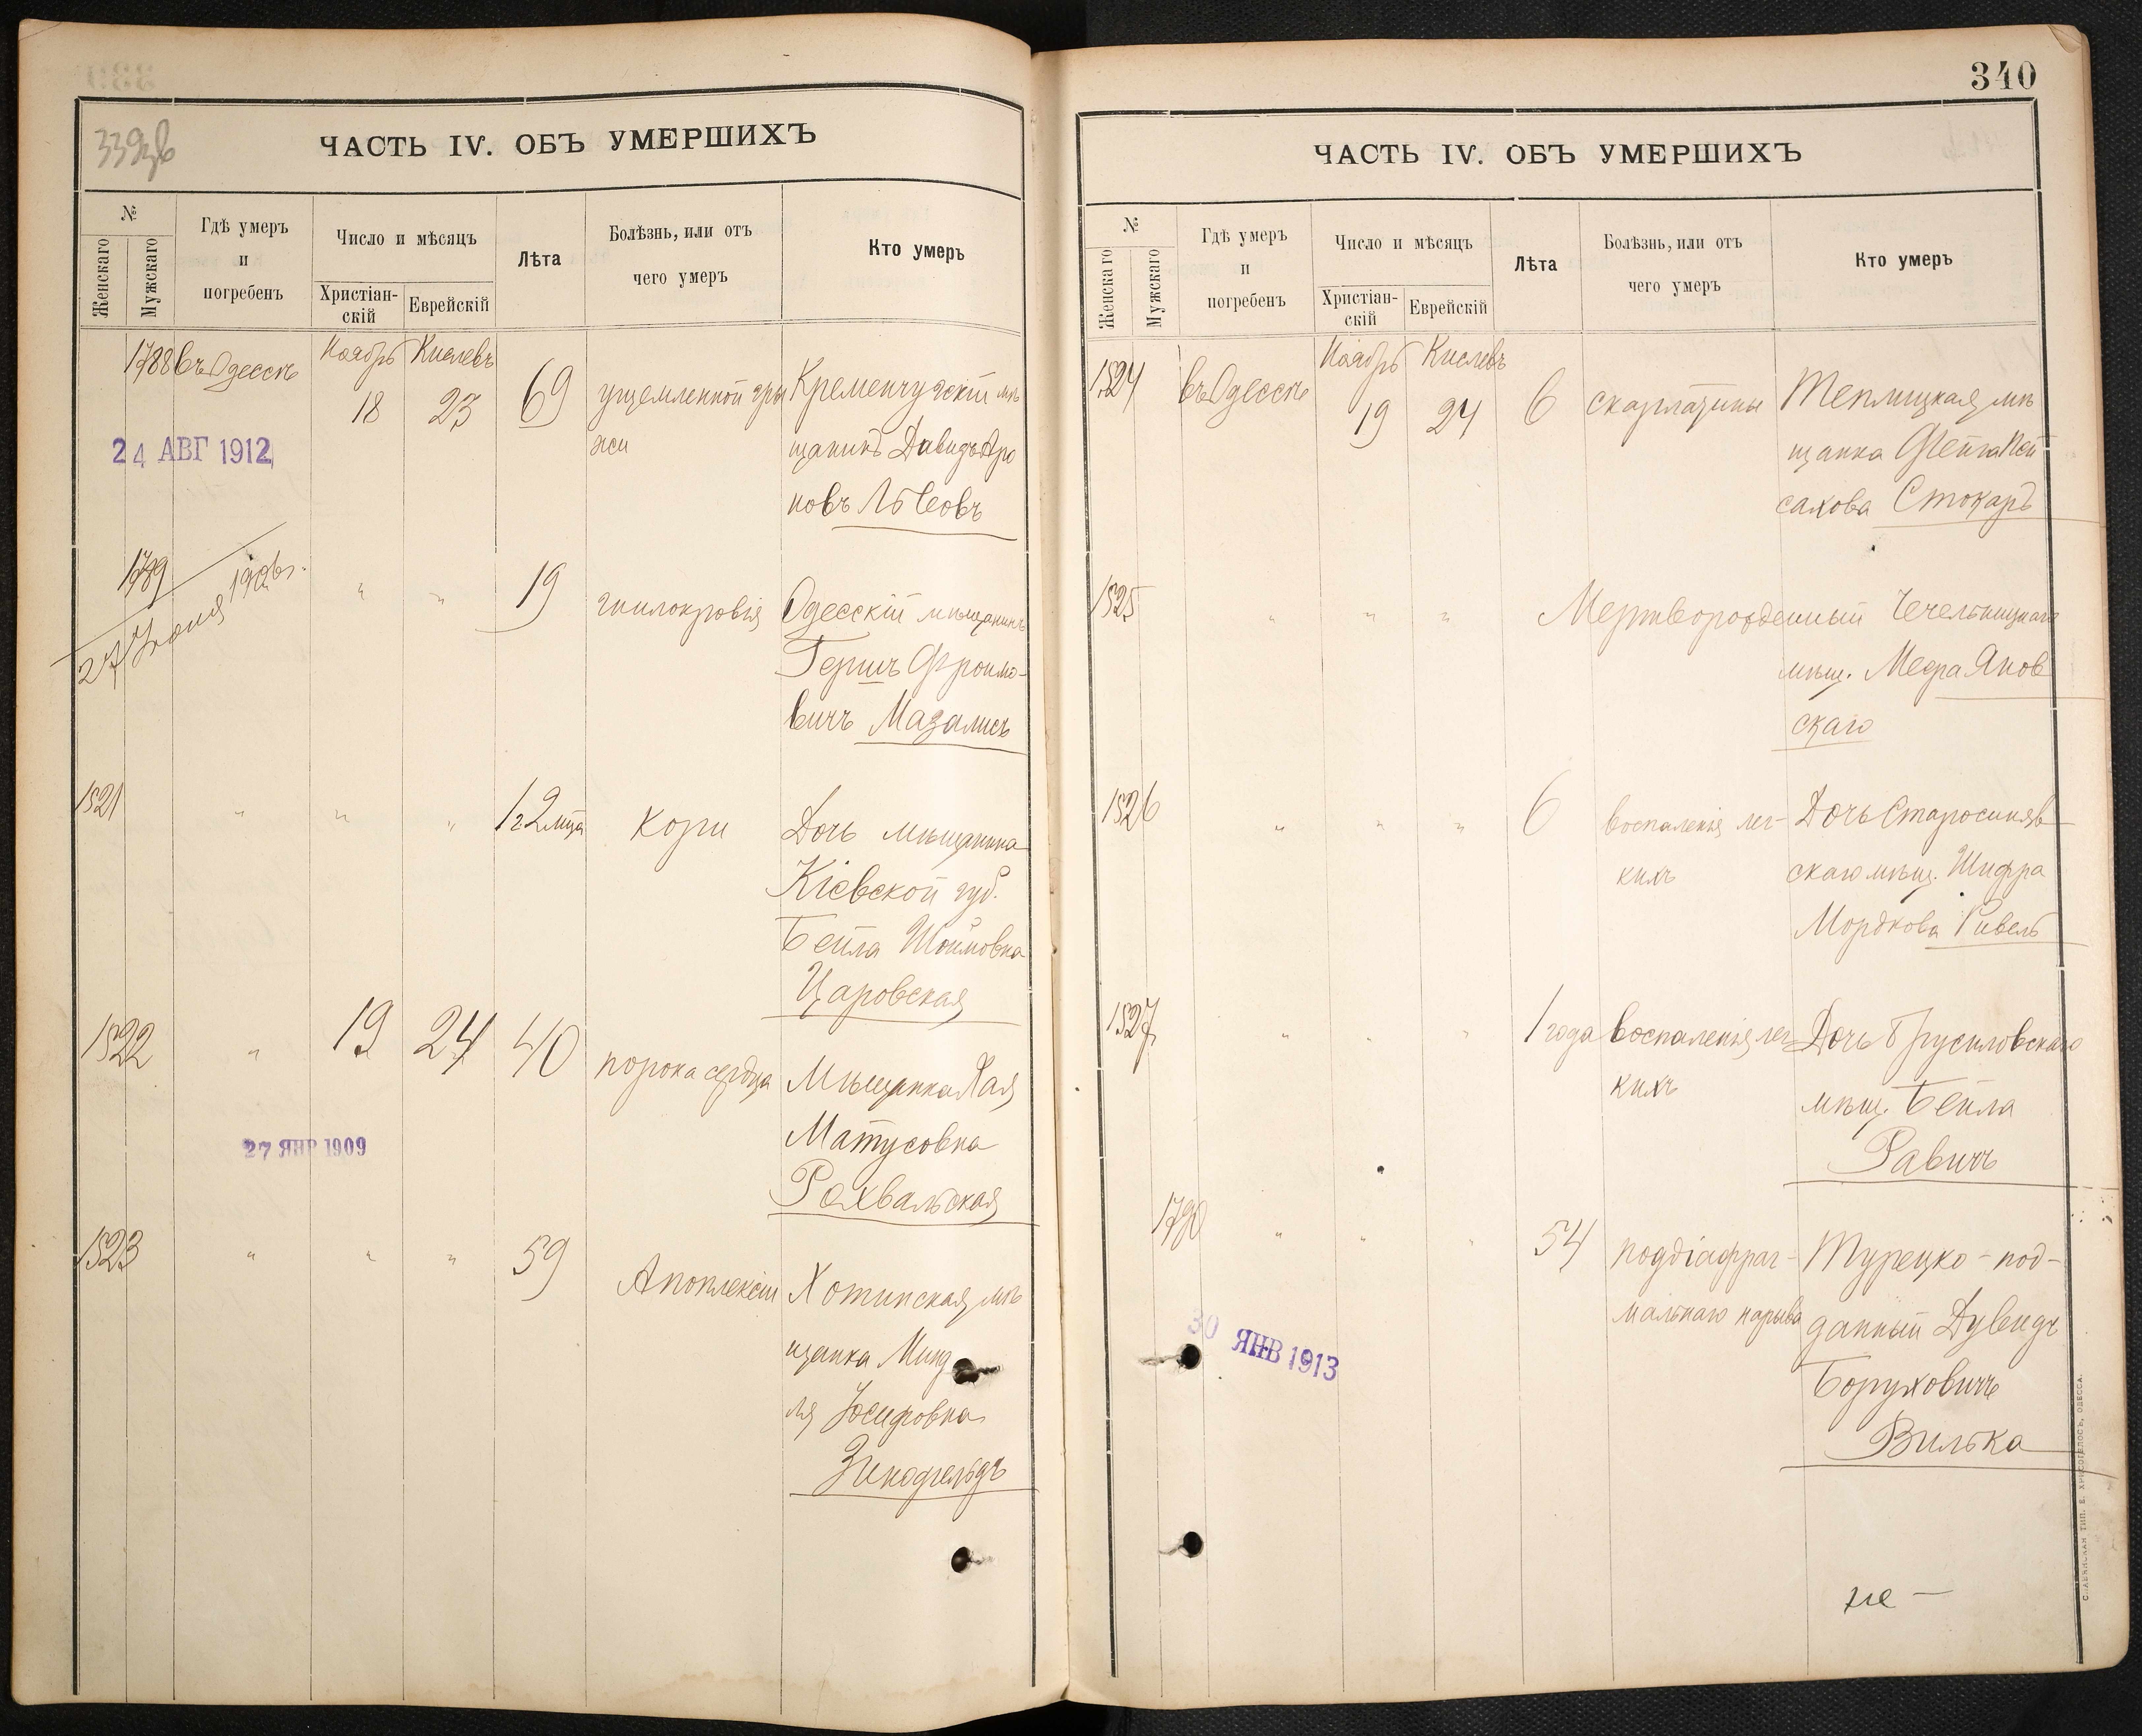 339об
ЧАСТЬ IV. ОБЪ УМЕРШИХЪ
№
Женскаго
Мужскаго
Гдѣ умеръ
и
погребенъ
Число и мѣсяцъ
Христіан-
скій
Еврейскій
Лѣта
Болѣзнь, или отъ
чего умеръ
Кто умеръ
1788 въ Одессѣ Ноябрь 18 Кислевъ 23 69 ущемленной гры
жи
Кременчугскій мѣ
щанинъ Давидъ Аро
новъ Львовъ
24 АВГ 1912
1789 " " 19 гнилокровія Одесскій мѣщанинъ
Гершъ Фроимо-
вичъ Мазалисъ
27 Іюня 1906 г.
1521 " " " 1 г 2 мца кори Дочь мѣщанина
Кіевской губ.
Бейла Шоимовна
Царовская
1522 " 19 24 40 порока сердца Мѣщанка Хая
Матусовна
Рохвальская
27 ЯНВ 1909
1523 " " " 59 Апоплексіи Хотинская мѣ
щанка Минд
ля Іосифовна
340
ЧАСТЬ IV. ОБЪ УМЕРШИХЪ
№
Женскаго
Мужскаго
Гдѣ умеръ
и
погребенъ
Число и мѣсяцъ
Христіан-
скій
Еврейскій
Лѣта
Болѣзнь, или отъ
чего умеръ
Кто умеръ
1524 въ Одессѣ Ноябрь 19 Кислевъ 24 6 скарлатины Теплицкая мѣ
щанка Пей
сахова Стокаръ
1525 " " " Мертворожденный Чечельницкаго
мѣщ. Меера Янов
скаго
1526 " " " 6 воспаленія лег-
кихъ
Дочь Старосиняв
скаго мѣщ. Шифра
Мордкова Ривель
1527 " " " 1 года воспаленія лег
кихъ
Дочь Брусиловскаго
мѣщ. Бейла
Равичъ
1790 " " " 54 поддіафраг-
мальнаго нарыва
Турецко-под-
данный Дувидъ
Боруховичъ
Вилька
30 ЯНВ 1913
СЛАВЯНСКАЯ ТИП. Е. ХРИСОГЕЛОСЪ, ОДЕССА.